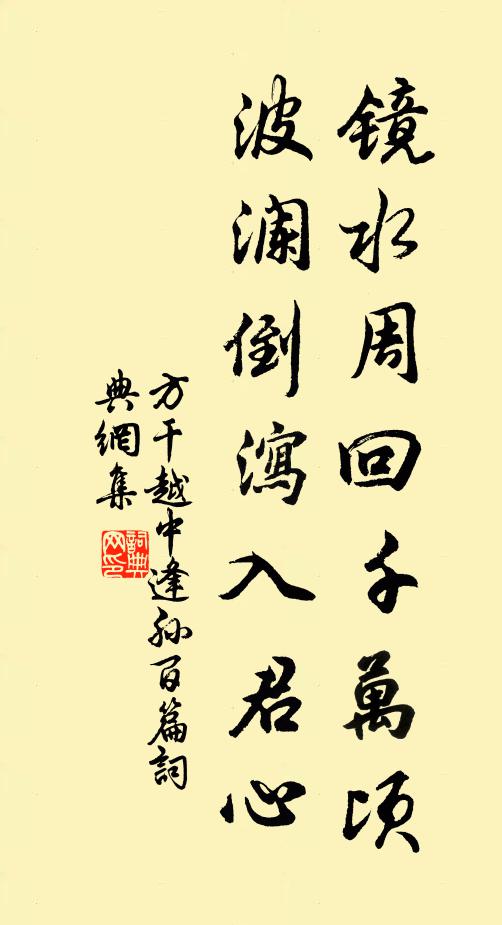 鏡水周回千萬頃
波瀾倒瀉入君心
方干越中逢孙百篇詞
典網集
詞典
网印